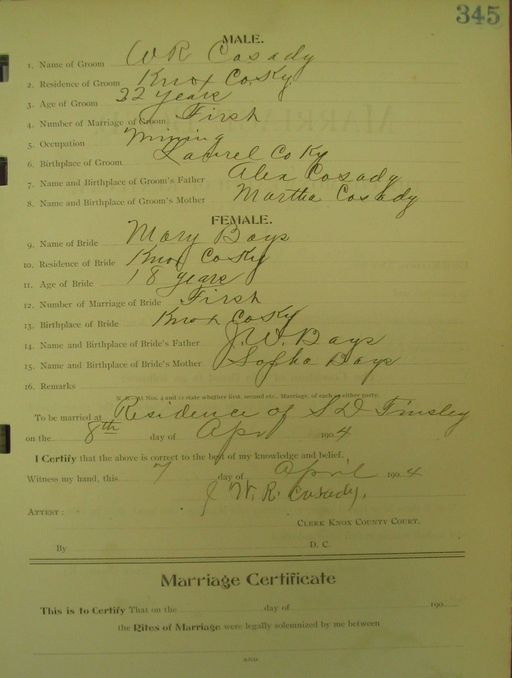 345
MALE.
1. Name of Groom W R Cosady
2. Residence of Groom Knox Co Ky
3. Age of Groom 22 years
4. Number of Marriage of Groom First
5. Occupation Mining
6. Birthplace of Groom Laurel Co Ky
7. Name and Birthplace of Groom's Father Alex Cosady
8. Name and Birthplace of Groom's Mother Martha Cosady
FEMALE.
9. Name of Bride Mary Bays
10. Residence of Bride Knox Co Ky
11. Age of Bride 18 years
12. Number of Marriage of Bride First
13. Birthplace of Bride Knox Co Ky
14. Name and Birthplace of Bride's Father J. W. Bays
15. Name and Birthplace of Bride's Mother Sopha Bays
16. Remarks
N. B. At Nos. 4 and 12 state whether first, second etc., Marriage, of each or either party.
To be married at Residence of S D Tinsley
on the 8th day of Apr 1904
I Certify that the above is correct to the best of my knowledge and belief.
Witness my hand, this 7 day of April 1904
W. R. Cosady.
ATTEST:
CLERK KNOX COUNTY COURT.
By D. C.
Marriage Certificate
This is to Certify That on the day of 190
the Rites of Marriage were legally solemnized by me between
AND